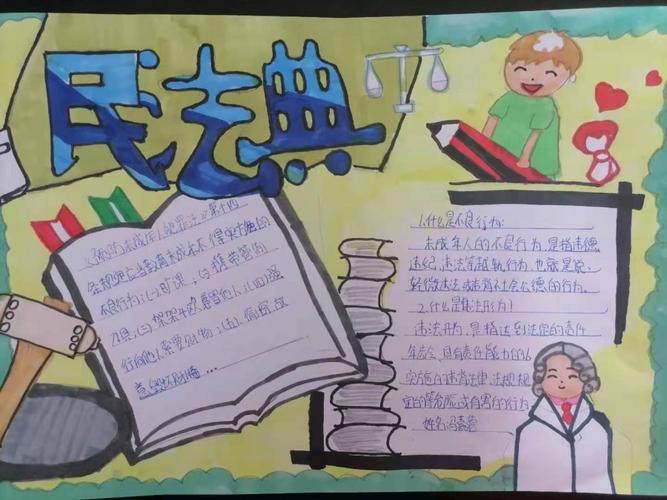 民法典
《预防未成年人犯罪法》第十四
条规定应当教育未成年不得实
不良行为:(一)旷课,(二)携带管制
刀具,(三)架架斗殴辱骂他人;(四)强
行向他人索要财物;(五)偷窃、故
意毁坏财物......
1.什么是不良行为:
未成年人的不良行为,是指违德
违纪、违法等越轨行为,也就是说,
轻微违法或违背社会公德的行为。
2.什么是违法行为?
违法行为,是指达到法定的责任
年龄、具有责任能力的人
实施的违背法律、法规规
定的等危险或有害的行为
姓名